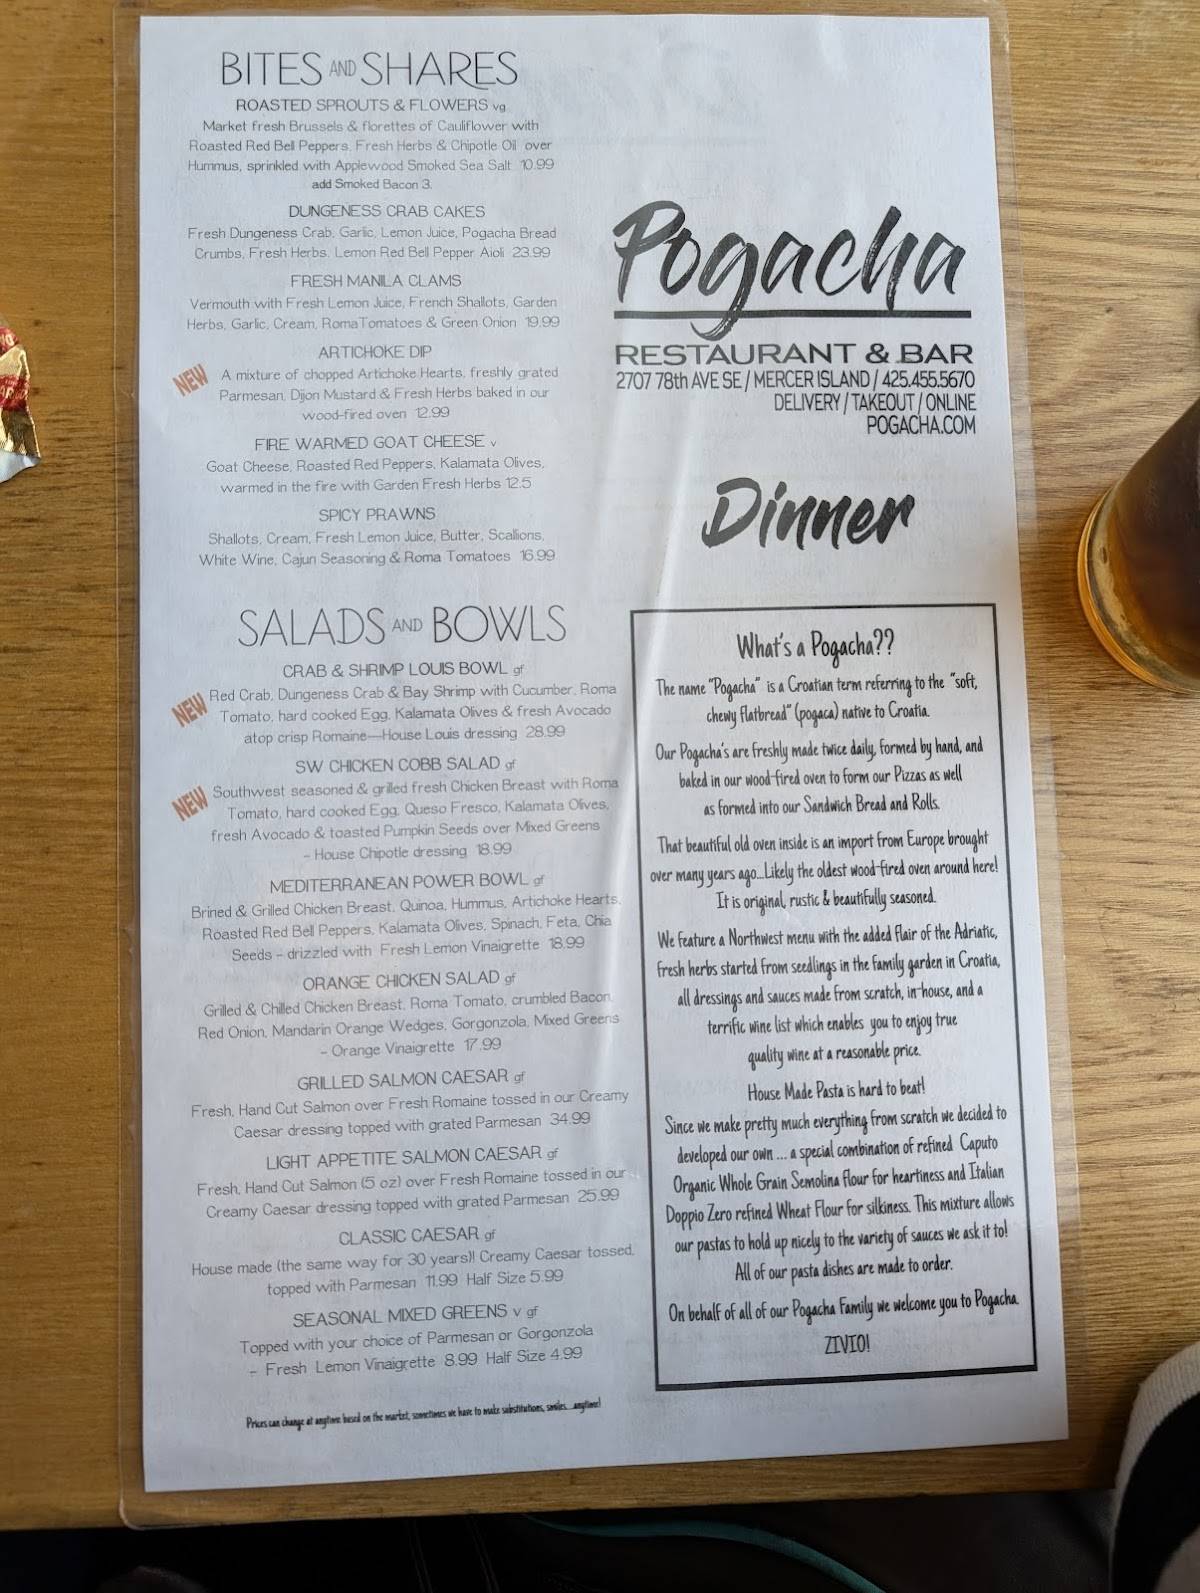 BITES AND SHARES
ROASTED SPROUTS & FLOWERS vg
Market fresh Brussels & florettes of Cauliflower with
Roasted Red Bell Peppers, Fresh Herbs & Chipotle Oil over
Hummus, sprinkled with Applewood Smoked Sea Salt 10.99
add Smoked Bacon 3.
DUNGENESS CRAB CAKES
Fresh Dungeness Crab, Garlic, Lemon Juice, Pogacha Bread
Crumbs, Fresh Herbs. Lemon Red Bell Pepper Aioli 23.99
FRESH MANILA CLAMS
Vermouth with Fresh Lemon Juice, French Shallots, Garden
Herbs, Garlic, Cream, RomaTomatoes & Green Onion 19.99
ARTICHOKE DIP
NEW
A mixture of chopped Artichoke Hearts, freshly grated
Parmesan, Dijon Mustard & Fresh Herbs baked in our
wood-fired oven 12.99
FIRE WARMED GOAT CHEESE v
Goat Cheese, Roasted Red Peppers, Kalamata Olives,
warmed in the fire with Garden Fresh Herbs 12.5
SPICY PRAWNS
Shallots, Cream, Fresh Lemon Juice, Butter, Scallions,
White Wine, Cajun Seasoning & Roma Tomatoes 16.99
SALADS AND BOWLS
CRAB & SHRIMP LOUIS BOWL gf
NEW
Red Crab, Dungeness Crab & Bay Shrimp with Cucumber, Roma
Tomato, hard cooked Egg, Kalamata Olives & fresh Avocado
atop crisp Romaine—House Louis dressing 28.99
SW CHICKEN COBB SALAD gf
NEW
Southwest seasoned & grilled fresh Chicken Breast with Roma
Tomato, hard cooked Egg, Queso Fresco, Kalamata Olives,
fresh Avocado & toasted Pumpkin Seeds over Mixed Greens
– House Chipotle dressing 18.99
MEDITERRANEAN POWER BOWL gf
Brined & Grilled Chicken Breast, Quinoa, Hummus, Artichoke Hearts,
Roasted Red Bell Peppers, Kalamata Olives, Spinach, Feta, Chia
Seeds – drizzled with Fresh Lemon Vinaigrette 18.99
ORANGE CHICKEN SALAD gf
Grilled & Chilled Chicken Breast, Roma Tomato, crumbled Bacon,
Red Onion, Mandarin Orange Wedges, Gorgonzola, Mixed Greens
– Orange Vinaigrette 17.99
GRILLED SALMON CAESAR gf
Fresh, Hand Cut Salmon over Fresh Romaine tossed in our Creamy
Caesar dressing topped with grated Parmesan 34.99
LIGHT APPETITE SALMON CAESAR gf
Fresh, Hand Cut Salmon (5 oz) over Fresh Romaine tossed in our
Creamy Caesar dressing topped with grated Parmesan 25.99
CLASSIC CAESAR gf
House made (the same way for 30 years)! Creamy Caesar tossed,
topped with Parmesan 11.99 Half Size 5.99
SEASONAL MIXED GREENS v gf
Topped with your choice of Parmesan or Gorgonzola
– Fresh Lemon Vinaigrette 8.99 Half Size 4.99
Prices can change at anytime based on the market, sometimes we have to make substitutions, smiles...anytime!
Pogacha
RESTAURANT & BAR
2707 78th AVE SE / MERCER ISLAND / 425.455.5670
DELIVERY / TAKEOUT / ONLINE
POGACHA.COM
Dinner
What's a Pogacha??
The name "Pogacha" is a Croatian term referring to the "soft,
chewy flatbread" (pogaca) native to Croatia.
Our Pogacha's are freshly made twice daily, formed by hand, and
baked in our wood-fired oven to form our Pizzas as well
as formed into our Sandwich Bread and Rolls.
That beautiful old oven inside is an import from Europe brought
over many years ago...Likely the oldest wood-fired oven around here!
It is original, rustic & beautifully seasoned.
We feature a Northwest menu with the added flair of the Adriatic,
fresh herbs started from seedlings in the family garden in Croatia,
all dressings and sauces made from scratch, in-house, and a
terrific wine list which enables you to enjoy true
quality wine at a reasonable price.
House Made Pasta is hard to beat!
Since we make pretty much everything from scratch we decided to
developed our own ... a special combination of refined Caputo
Organic Whole Grain Semolina flour for heartiness and Italian
Doppio Zero refined Wheat Flour for silkiness. This mixture allows
our pastas to hold up nicely to the variety of sauces we ask it to!
All of our pasta dishes are made to order.
On behalf of all of our Pogacha Family we welcome you to Pogacha.
ZIVIO!